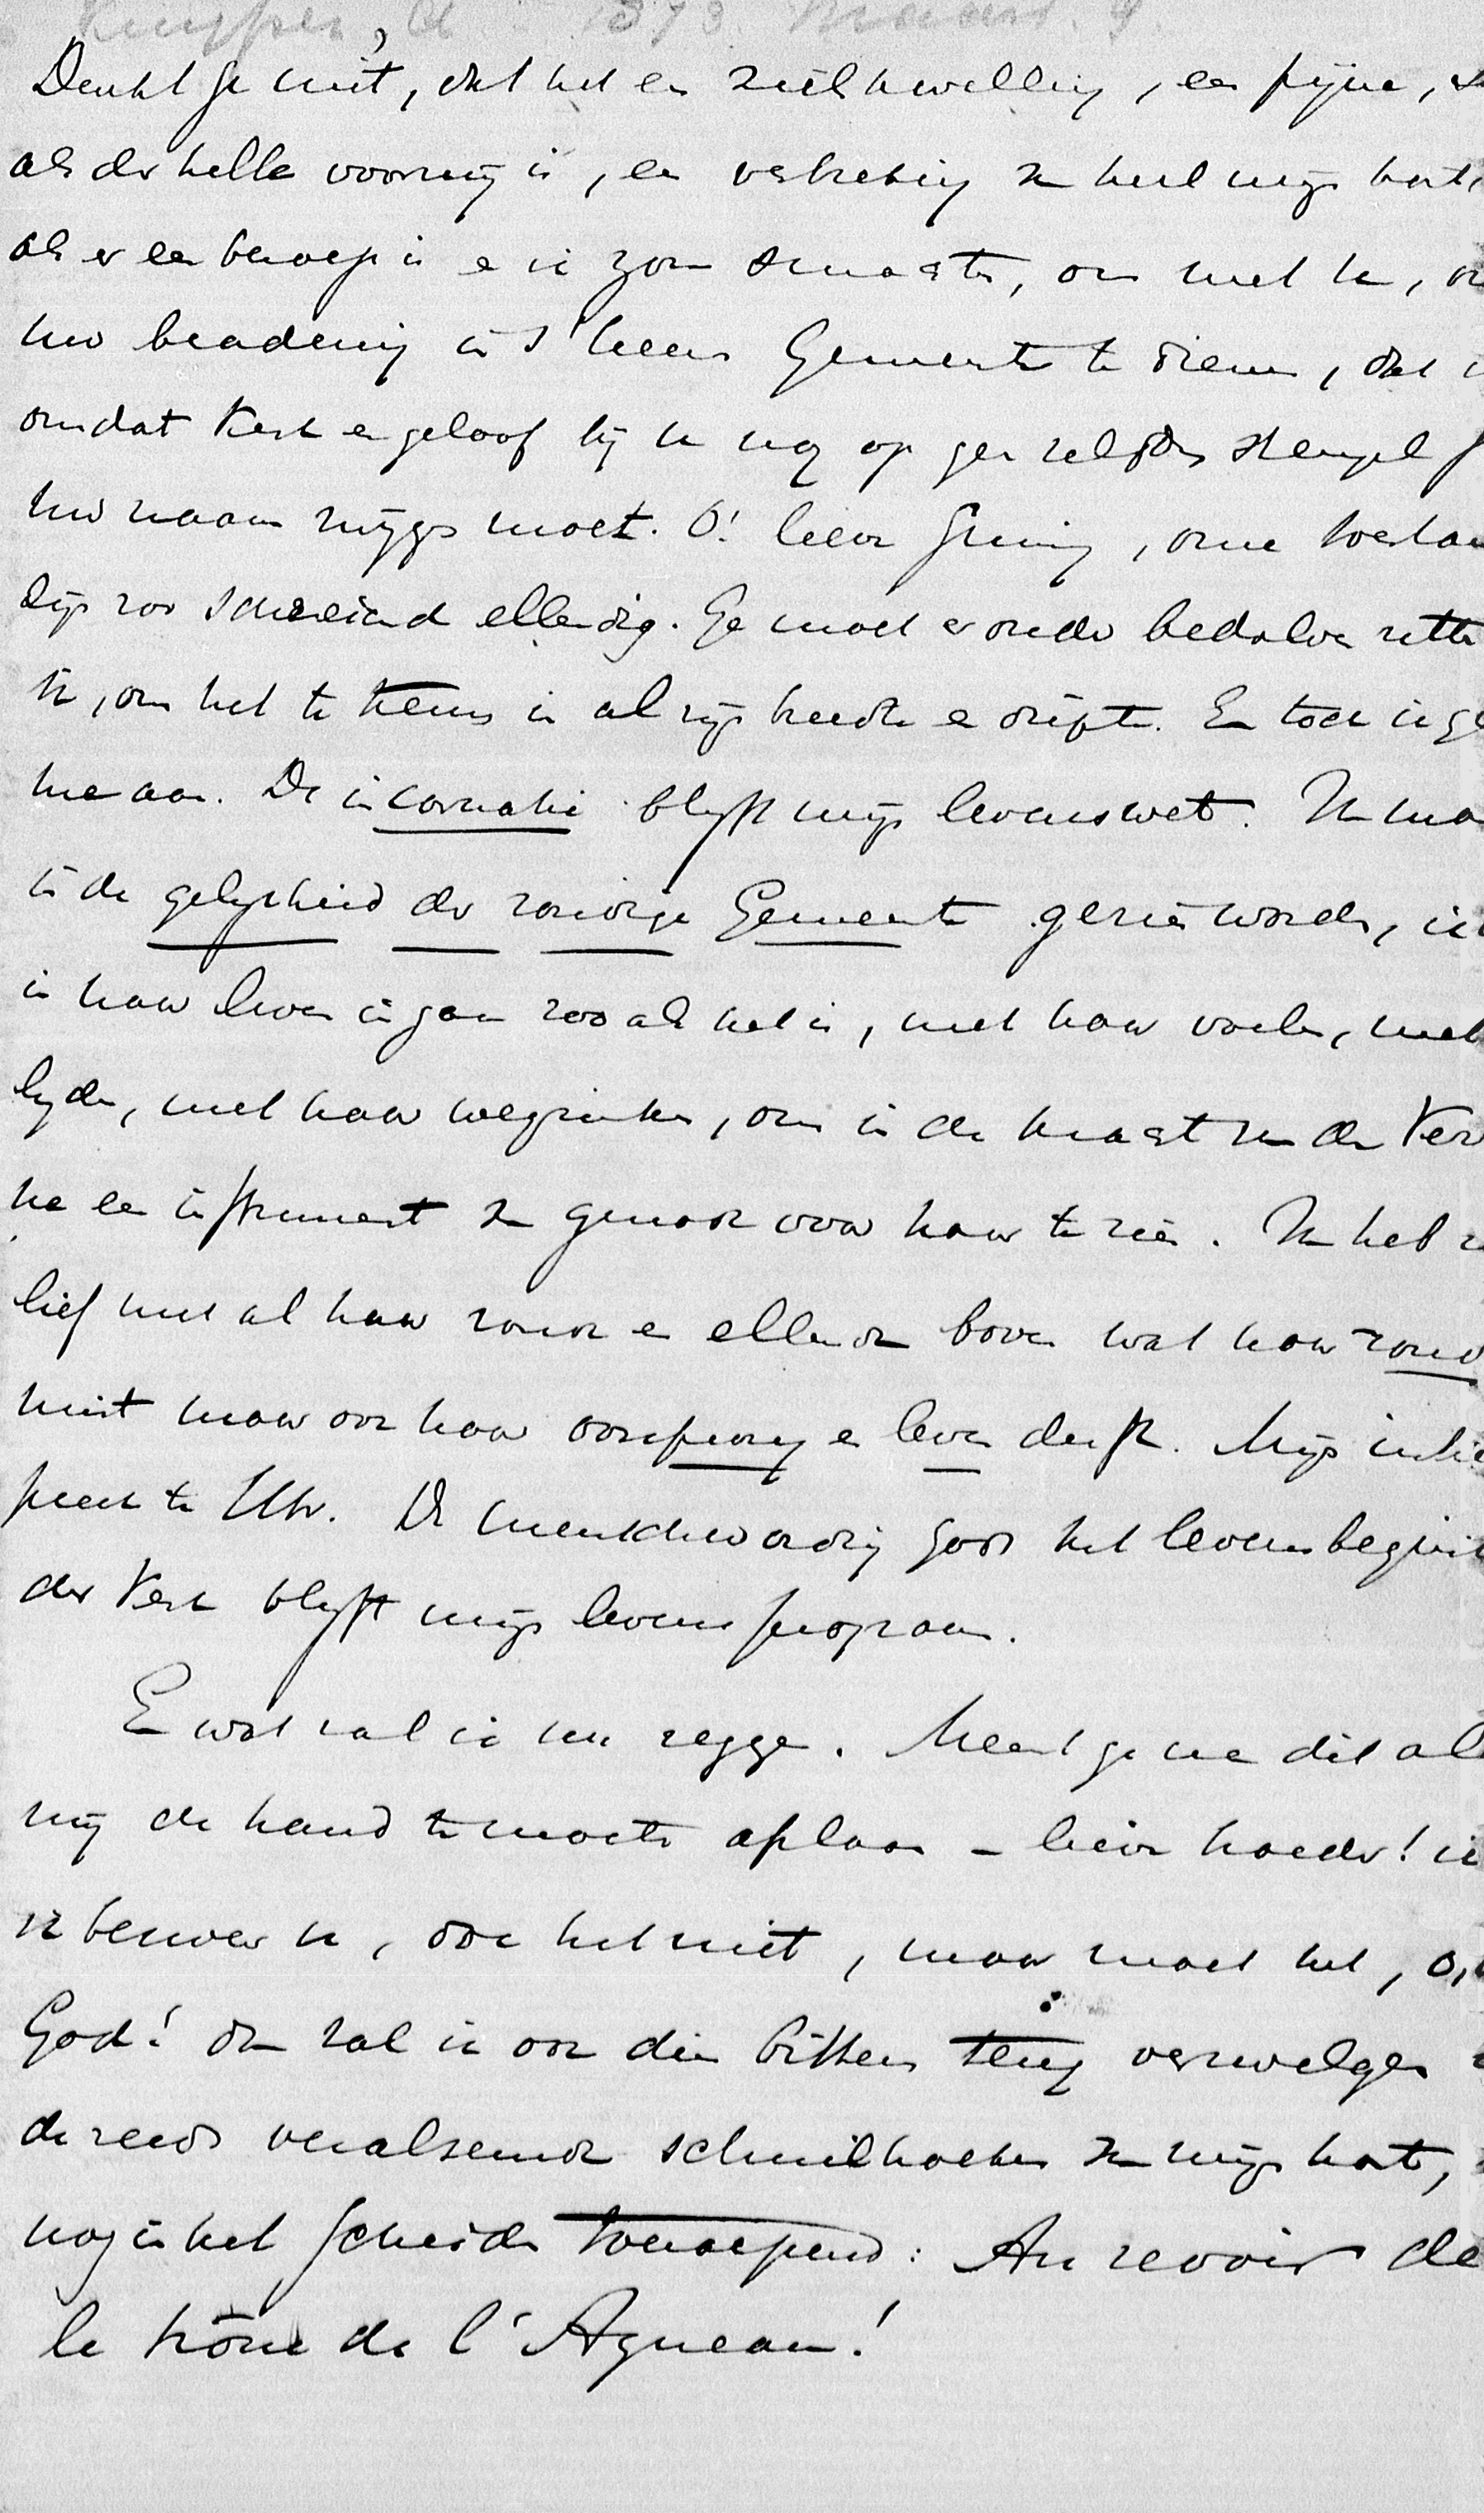 Kuyper, A. 1873 Maart 9.
Denkt ge niet, dat het een zielkwelling, een pijne,
als der helle voor mij is, een verbreking van heel mijn hart,
als er een beroep is en ik zou smachten, om met u, on
uw beademing in 's Heeren Gemeente te dienen, dat i
omdat Kerk en geloof bij u nog op geen zelfden stengel
uw naam zwijgen moet. O! lieve Gunning, onze toestan
zijn zoo schreiend ellendig. Ge moet er onder bedolven zitten
ik, om het te kennen in al zijn breedte en diepte. En toch ik g
me aan. De incarnatie blijft mijn levenswet. Ik moe
in de gelijkheid der zondige Gemeente gezien worden, ik
in haar leven ingaan zooals het is, met haar voelen, met
lijden, met haar wegzinken, om in de kracht van den Ver
he een instrument van genade voor haar te zijn. Ik heb z
lief met al haar zonde en ellende boven wat haar zond
mist maar ook haar oorsprong en leven derft. Mijn intre
preek te Utr. De menschwording Gods het levensbegins
der Kerk blijft mijn levensprogram.
En wat zal ik nu zeggen. Meent ge me dit al
mij de hand te moeten afslaan – lieve broeder! ik
ik bezweer u, doe het niet, maar moet het, o,
God! dan zal ik ook dien bitteren teug verzwelgen
de reeds veralsemde schuilhoeken van mijn hart,
nog in het scheiden toeroepend: Au revoir de
le trône de l'Agneau!